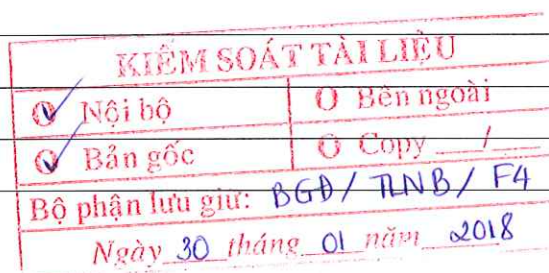 KIỂM SOÁT TÀI LIỆU
Nội bộ O Bên ngoài
Bản gốc O Copy ___/___
Bộ phận lưu giữ: BGĐ / TLNB / F4
Ngày 30 tháng 01 năm 2018